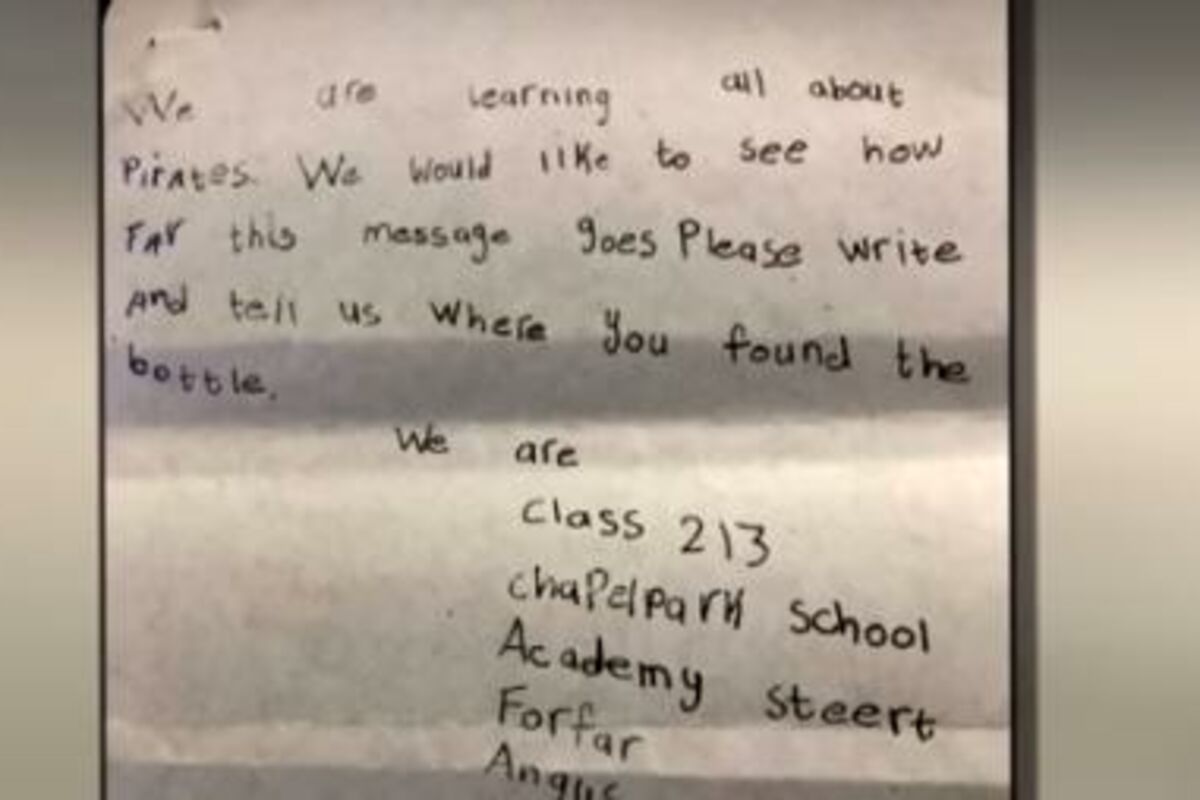 We are learning all about
Pirates. We would like to see how
Far this message goes Please write
And tell us where you found the
bottle.
We are
Class 213
chapelpark school
Academy steert
Forfar
Angus